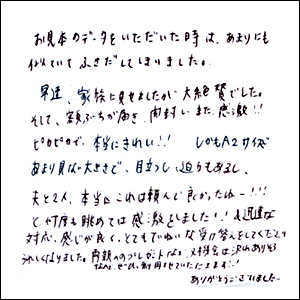 お見本のデータをいただいた時は、あまりにも
似ていて ふきだしてしまいました。
早速、家族に見せましたが 大絶賛でした。
そして、額ぶちが届き、開封し また 感激!!
ピカピカで、本当にきれい!! しかもA2サイズ
あまり見ない大きさで、目立つし 迫力もあるし、
夫と2人、本当に これは頼んで 良かったねー!!!
と、何度も眺めては 感激をしました!! 迅速な
対応、感じが良く、とてもていねいな受け答えをしてくださり
うれしくなりました。両親へのプレゼントなど
ぜひ、利用させていただきます!!
ありがとうございました。